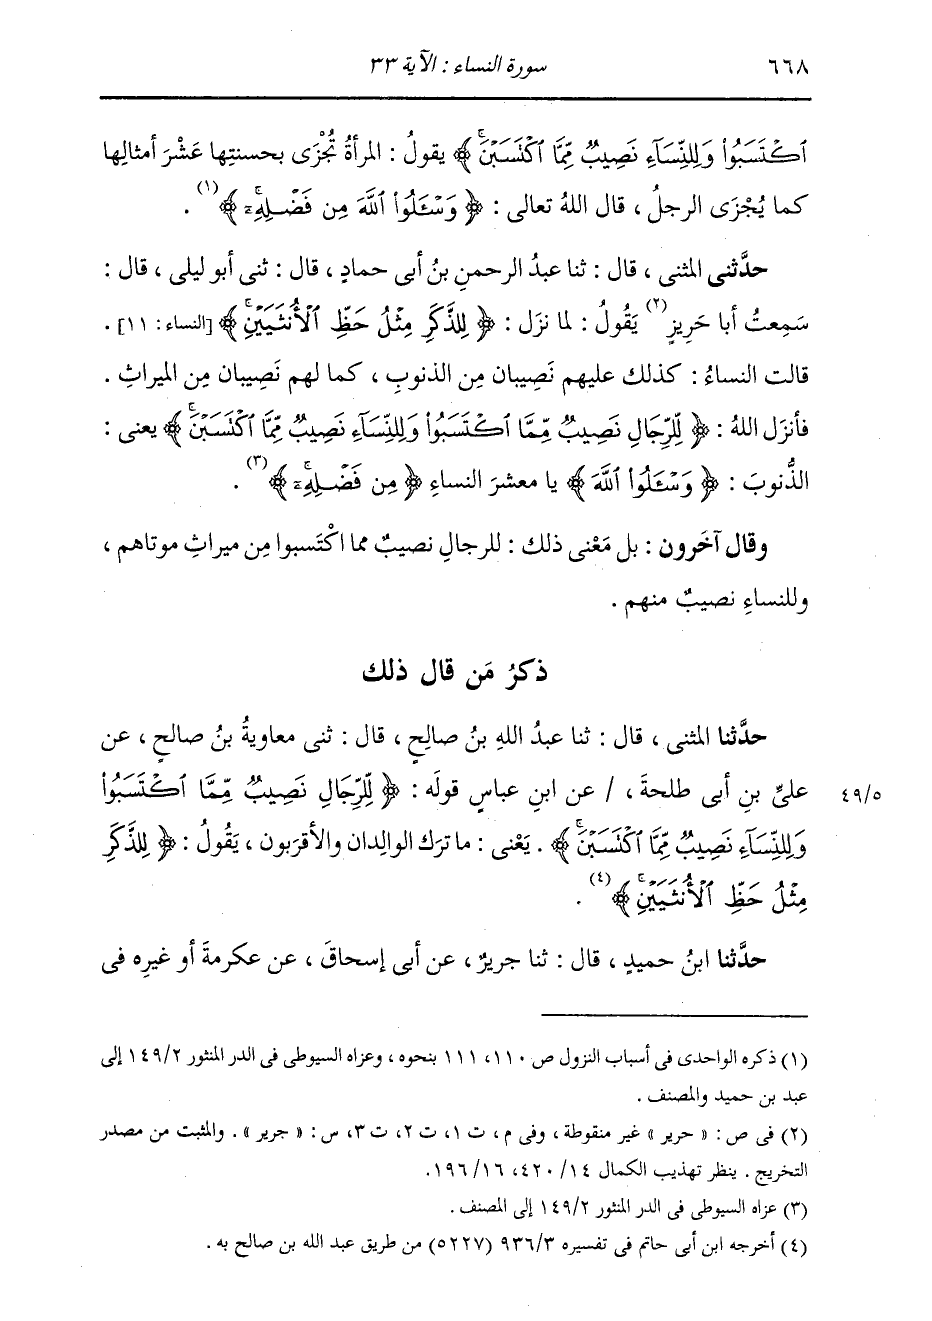 ٦٦٨ سورة النساء : الآية ٣٣
ٱكْتَسَبُوا۟ وَلِلنِّسَآءِ نَصِيبٌ مِّمَّا ٱكْتَسَبْنَ ۚ ﴾ يقولُ : المرأةُ تُجْزَى بحسنتِها عَشْرَ أمثالِها
كما يُجْزَى الرجلُ ، قال اللهُ تعالى : ﴿ وَسْـَٔلُوا۟ ٱللَّهَ مِن فَضْلِهِۦٓ ۚ ﴾ (١) .
حدَّثنى المثنى ، قال : ثنا عبدُ الرحمنِ بنُ أبى حمادٍ ، قال : ثنى أبو ليلى ، قال :
سَمِعتُ أبا حَرِيزٍ (٢) يَقُولُ : لما نزَل : ﴿ لِلذَّكَرِ مِثْلُ حَظِّ ٱلْأُنثَيَيْنِ ۚ ﴾ [النساء : ١١] .
قالت النساءُ : كذلك عليهم نَصِيبان مِن الذنوبِ ، كما لهم نَصِيبان مِن الميراثِ .
فأنزَل اللهُ : ﴿ لِّلرِّجَالِ نَصِيبٌ مِّمَّا ٱكْتَسَبُوا۟ وَلِلنِّسَآءِ نَصِيبٌ مِّمَّا ٱكْتَسَبْنَ ۚ ﴾ يعنى :
الذُّنوبَ : ﴿ وَسْـَٔلُوا۟ ٱللَّهَ ﴾ يا معشرَ النساءِ ﴿ مِن فَضْلِهِۦٓ ۚ ﴾ (٣) .
وقال آخَرون : بل مَعْنى ذلك : للرجالِ نصيبٌ مما اكْتَسبوا مِن ميراثِ موتاهم ،
وللنساءِ نصيبٌ منهم .
ذكرُ مَن قال ذلك
حدَّثنا المثنى ، قال : ثنا عبدُ اللهِ بنُ صالحٍ ، قال : ثنى معاويةُ بنُ صالحٍ ، عن
علىِّ بنِ أبى طلحةَ ، / عن ابنِ عباسٍ قولَه : ﴿ لِّلرِّجَالِ نَصِيبٌ مِّمَّا ٱكْتَسَبُوا۟ ٤٩/٥
وَلِلنِّسَآءِ نَصِيبٌ مِّمَّا ٱكْتَسَبْنَ ۚ ﴾ . يَعْنى : ما ترَك الوالِدان والأقرَبون ، يَقُولُ : ﴿ لِلذَّكَرِ
مِثْلُ حَظِّ ٱلْأُنثَيَيْنِ ۚ ﴾ (٤) .
حدَّثنا ابنُ حميدٍ ، قال : ثنا جريرٌ ، عن أبى إسحاقَ ، عن عكرمةَ أو غيرِه فى
(١) ذكره الواحدى فى أسباب النزول ص ١١٠، ١١١ بنحوه ، وعزاه السيوطى فى الدر المنثور ١٤٩/٢ إلى
عبد بن حميد والمصنف .
(٢) فى ص : « حرير » غير منقوطة ، وفى م ، ت ١، ت ٢، ت ٣، س : « جرير » . والمثبت من مصدر
التخريج . ينظر تهذيب الكمال ٤٢٠/١٤، ١٩٦/١٦.
(٣) عزاه السيوطى فى الدر المنثور ١٤٩/٢ إلى المصنف .
(٤) أخرجه ابن أبى حاتم فى تفسيره ٩٣٦/٣ (٥٢٢٧) من طريق عبد الله بن صالح به .